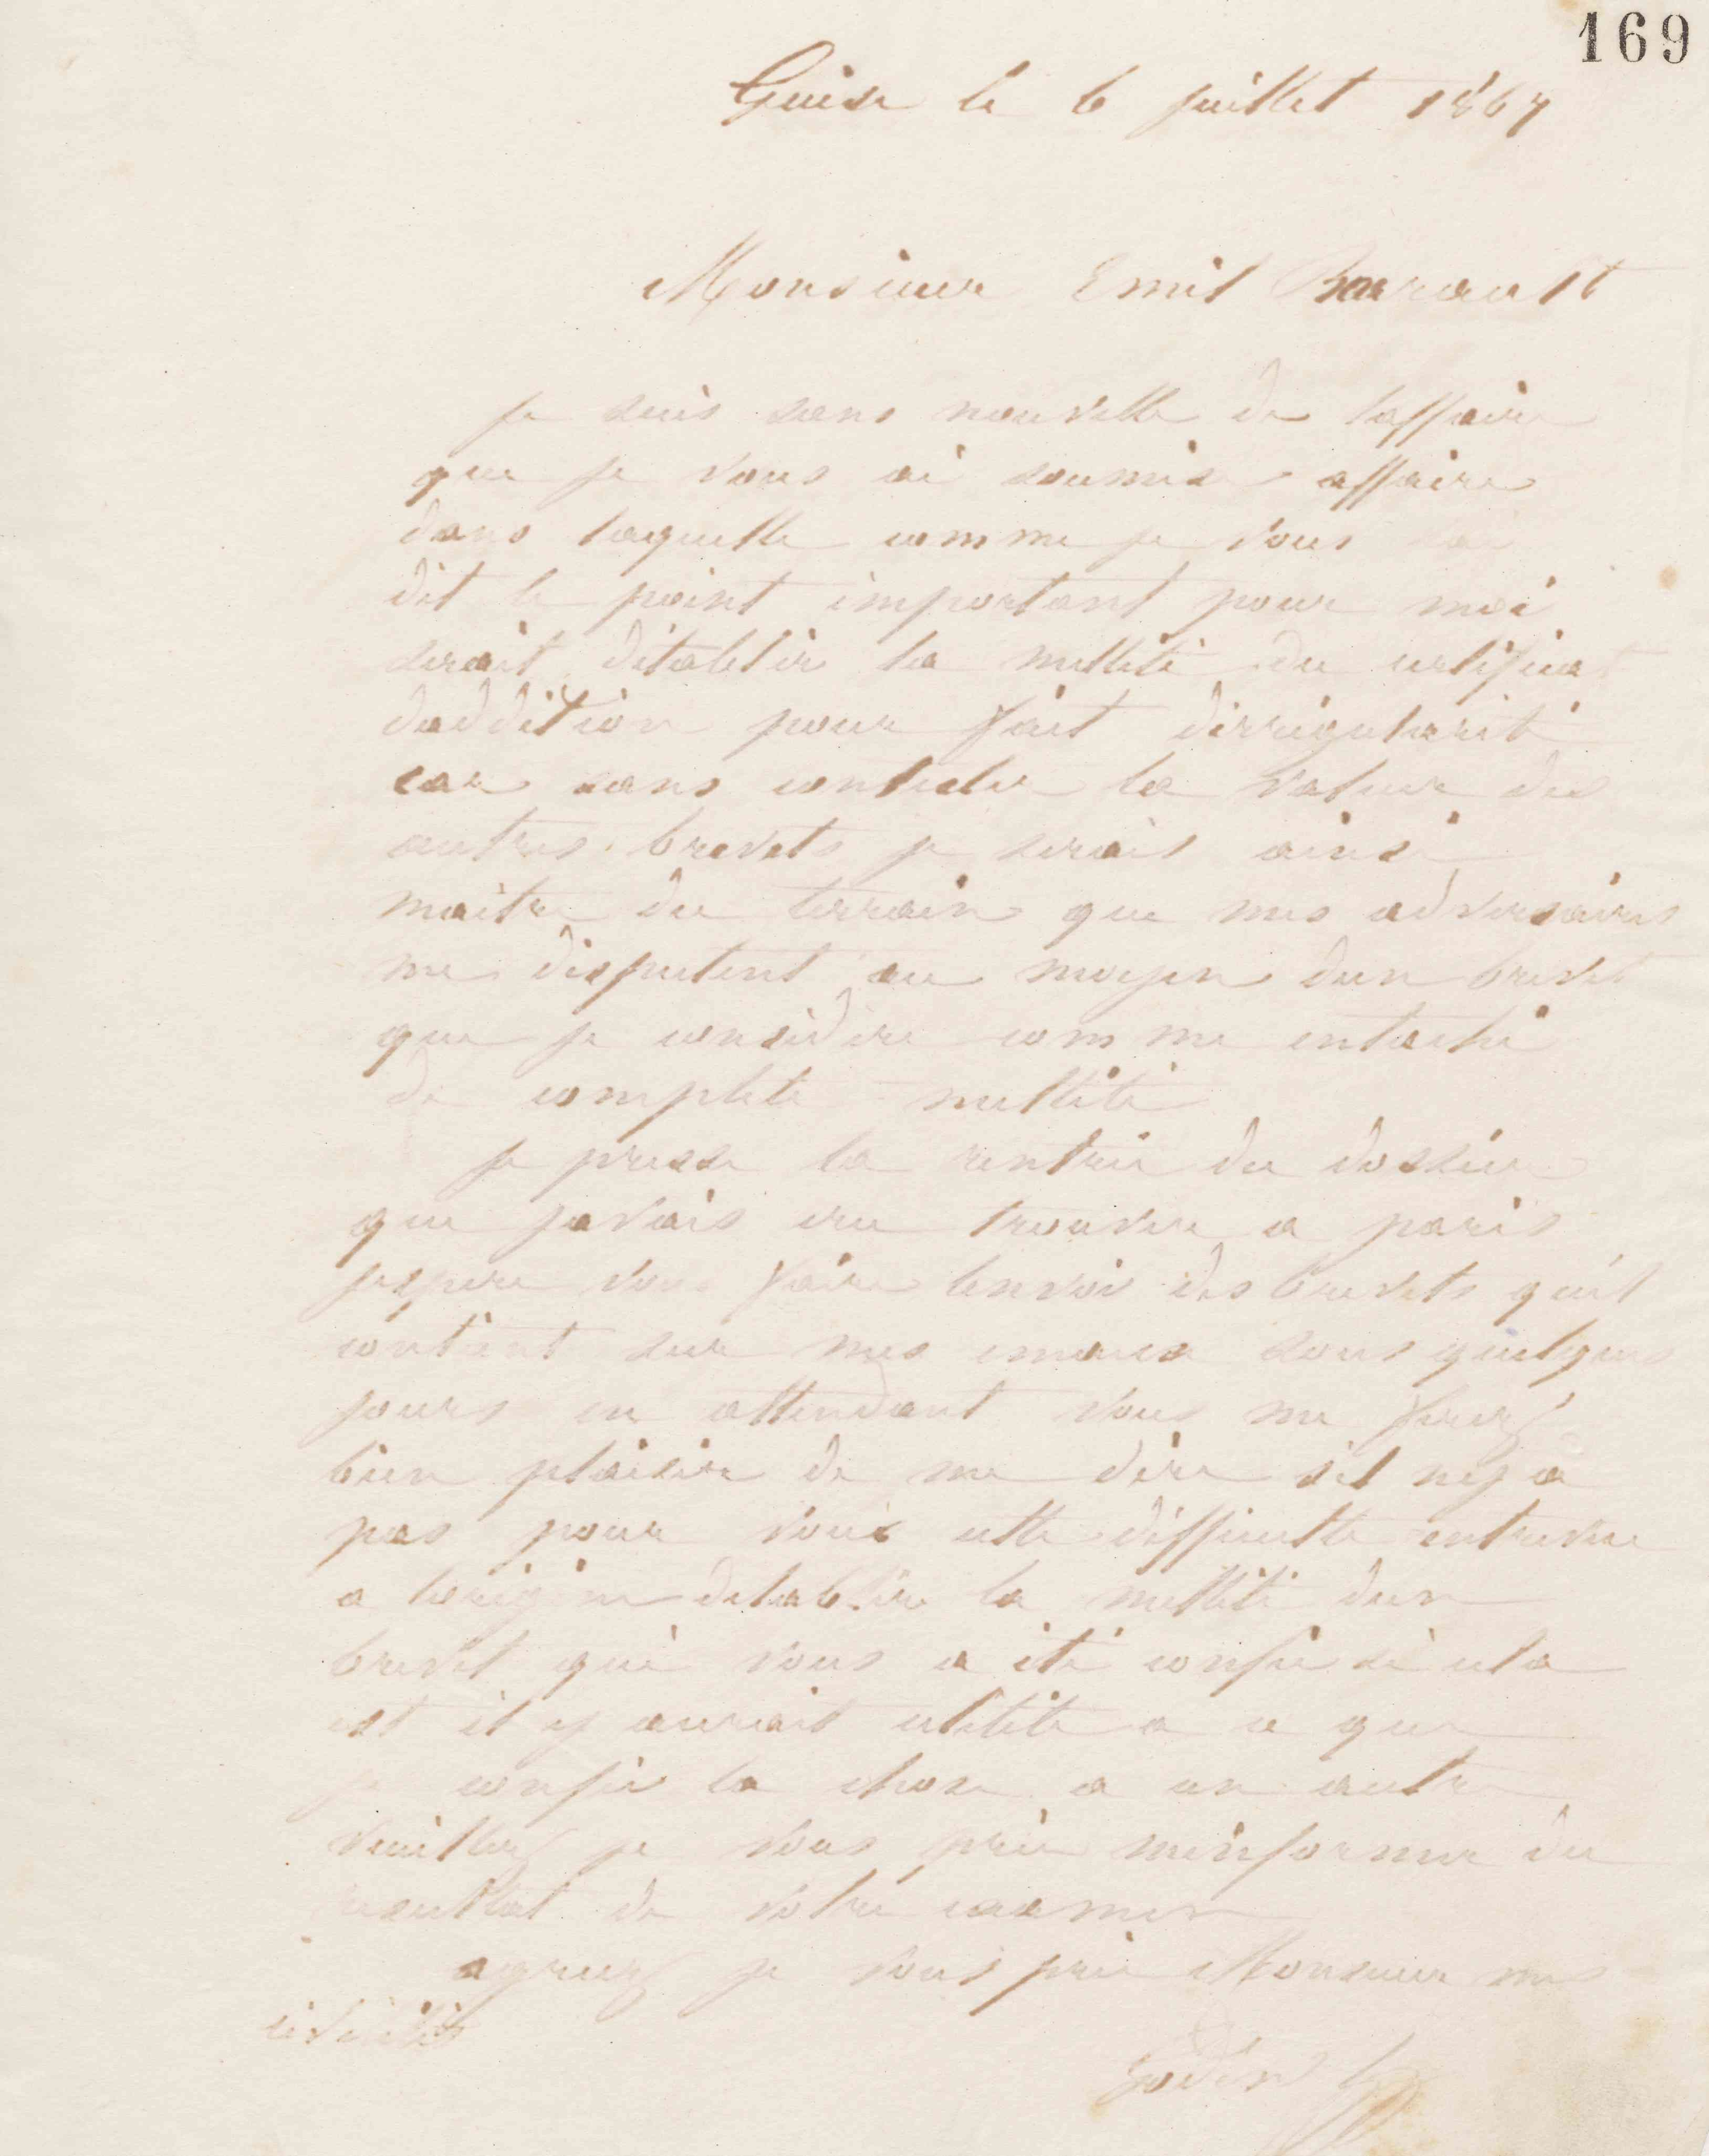 169
Guise le 6 juillet 1867
Monsieur Emil Barrault
je suis sans nouvelle de laffaire
que je vous ai soumise affaire
dans laquelle comme je vous ai
dit le point important pour moi
serait détablir la nullité du certificat
daddition pour fait dirrégularité
car sans contester la valeur des
autres brevets je serais ainsi
maitre du terrain que mes adversaires
me disputent au moyen dun brevet
que je considère comme entaché
de complete nullité
je presse la rentrée du dossier
que javais cru trouver a paris
jespere vous faire lenvoi des brevets quil
contient sur mes emaux sous quelques
jours en attendant vous me ferez
bien plaisir de me dire sil ny a
pas pour vous cette difficulté entrevue
a lorigine detablir la nullité dun
brevet qui vous a été confié si cela
est il y aurait utilité a ce que
je confie la chose a un autre
veuillez je vous prie minformer du
resultat de votre examen
agreez je vous prie Monsieur mes
civilités
Godin